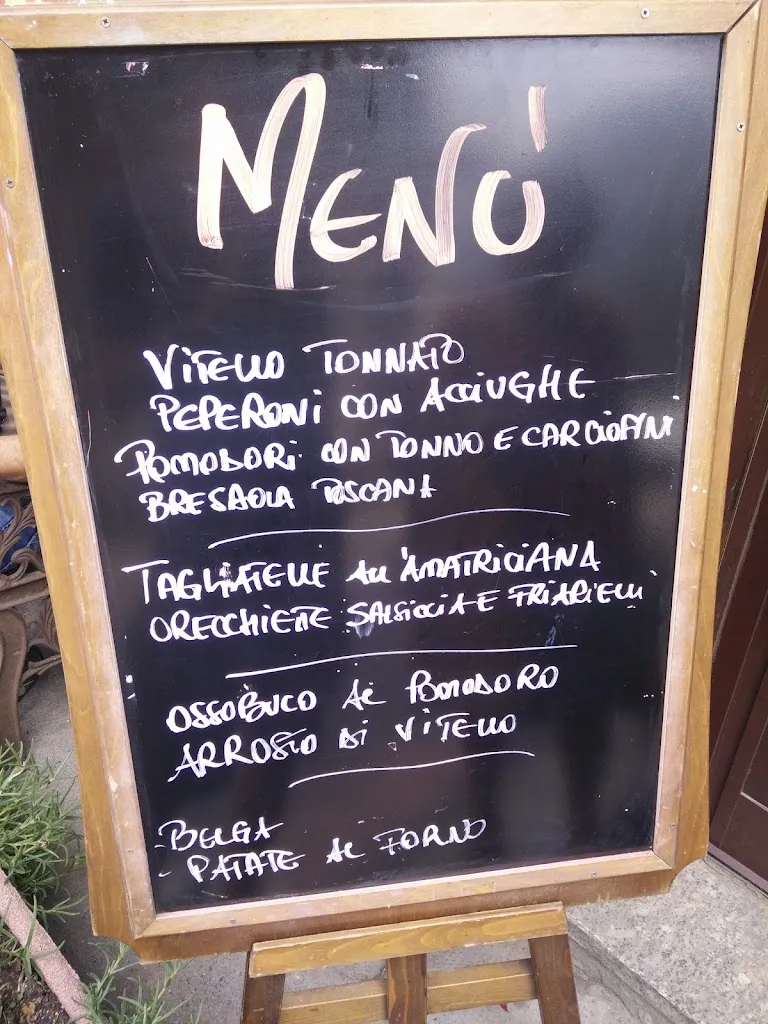 MENÙ
VITELLO TONNATO
PEPERONI CON ACCIUGHE
POMODORI CON TONNO E CARCIOFINI
BRESAOLA TOSCANA
TAGLIATELLE ALL'AMATRICIANA
ORECCHIETTE SALSICCIA E FRIARIELLI
OSSOBUCO AL POMODORO
ARROSTO DI VITELLO
- BELGA
- PATATE AL FORNO